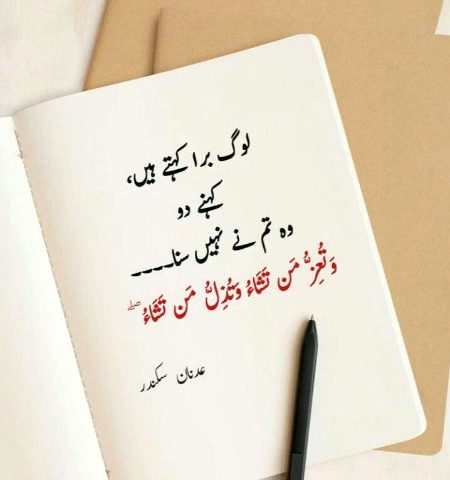 لوگ برا کہتے ہیں،
کہنے دو
وہ تم نے نہیں سنا۔۔۔۔
وَتُعِزُّ مَن تَشَاءُ وَتُذِلُّ مَن تَشَاءُ ۖ
عدنان سکندر